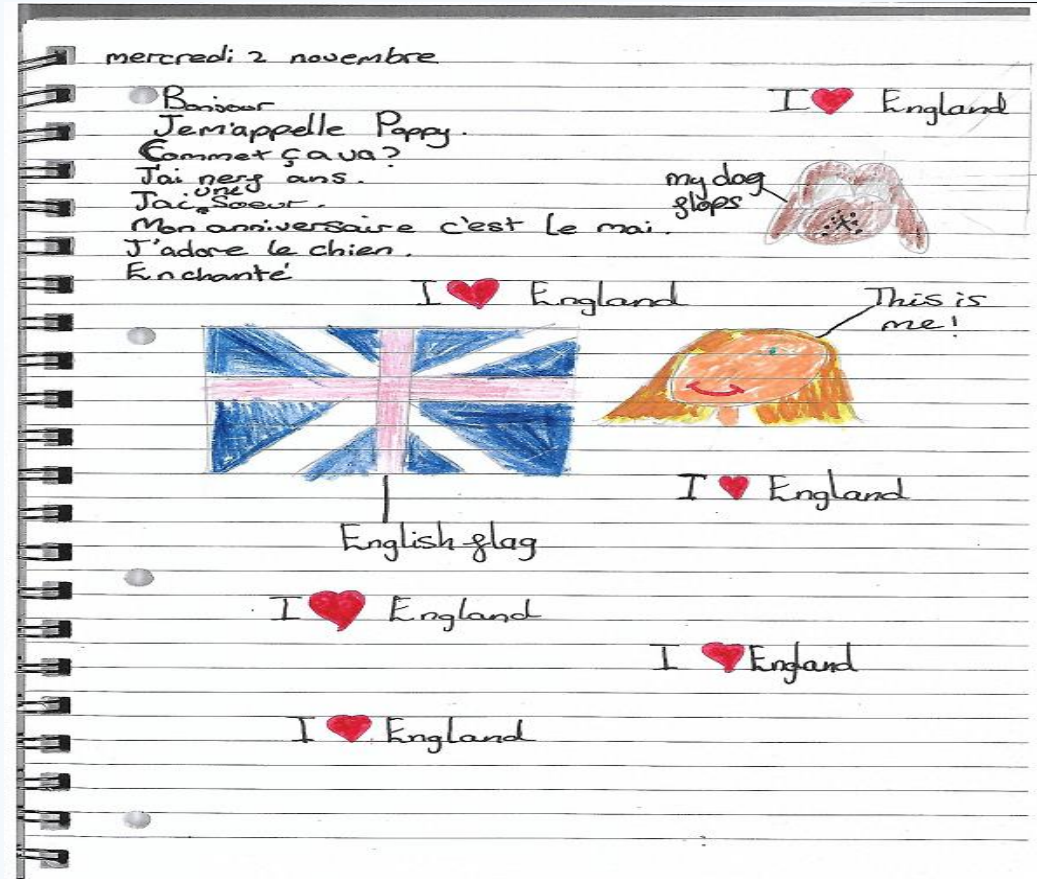 mercredi 2 novembre
Bonjour
Je m'appelle Poppy.
Commet ça va?
J'ai nerf ans.
J'ai une Soeur.
Mon anniversaire c'est le mai.
J'adore le chien.
Enchanté
I ❤ England
my dog
flops
I ❤ England
This is
me!
English flag
I ❤ England
I ❤ England
I ❤ England
I ❤ England